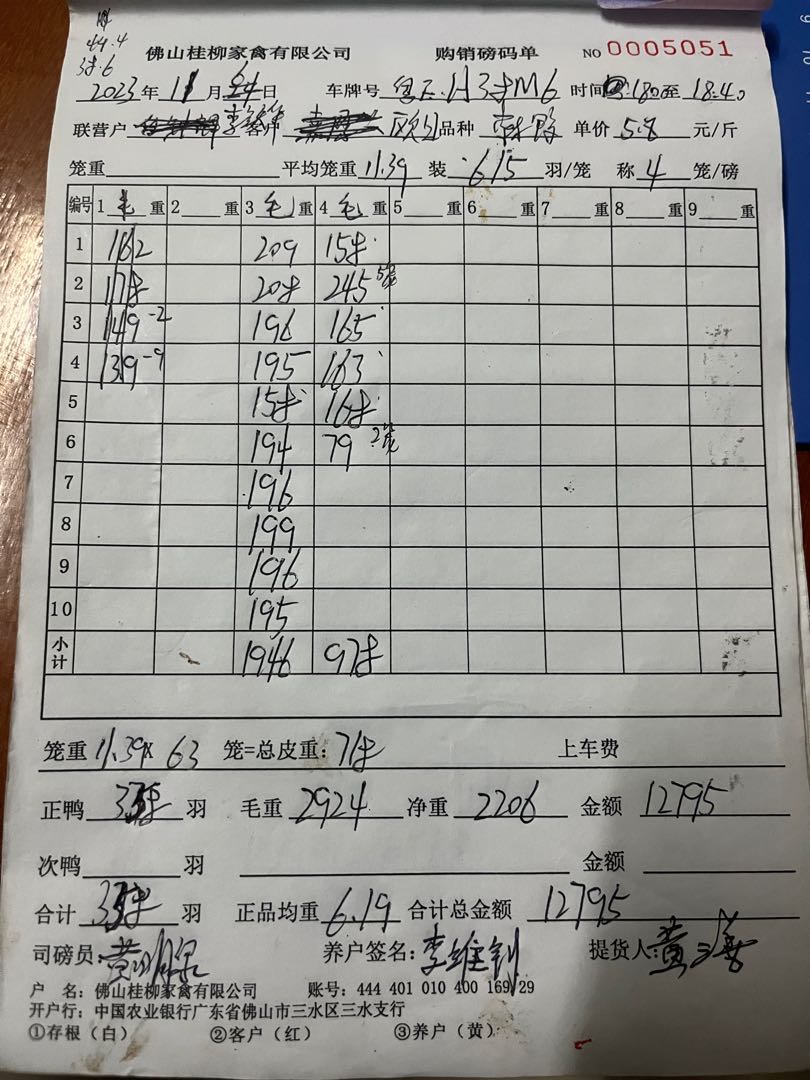 44.4
38.6
佛山桂柳家禽有限公司 购销磅码单 NO 0005051
2023年 11月 日 车牌号 H38M6 时间 至 18:40
联营户 客户 品种 单价 5.8 元/斤
笼重 平均笼重 11.39 装 6/5 羽/笼 称 4 笼/磅
编号 1 毛 重 2 重 3 毛 重 4 毛 重 5 重 6 重 7 重 8 重 9 重
1 162 209 158
2 178 208 245 5笼
3 149-2 196 165
4 139-9 195 163
5 158 168
6 194 79 2笼
7 196
8 199
9 196
10 195
小计 1946 978
笼重 11.39X 63 笼=总皮重: 718 上车费
正鸭 羽 毛重 2924 净重 2206 金额 12795
次鸭 羽 金额
合计 羽 正品均重 6.19 合计总金额 12795
司磅员: 养户签名: 李维钊 提货人: 黄
户 名: 佛山桂柳家禽有限公司 账号: 444 401 010 400 169 29
开户行: 中国农业银行广东省佛山市三水区三水支行
①存根(白) ②客户(红) ③养户(黄)